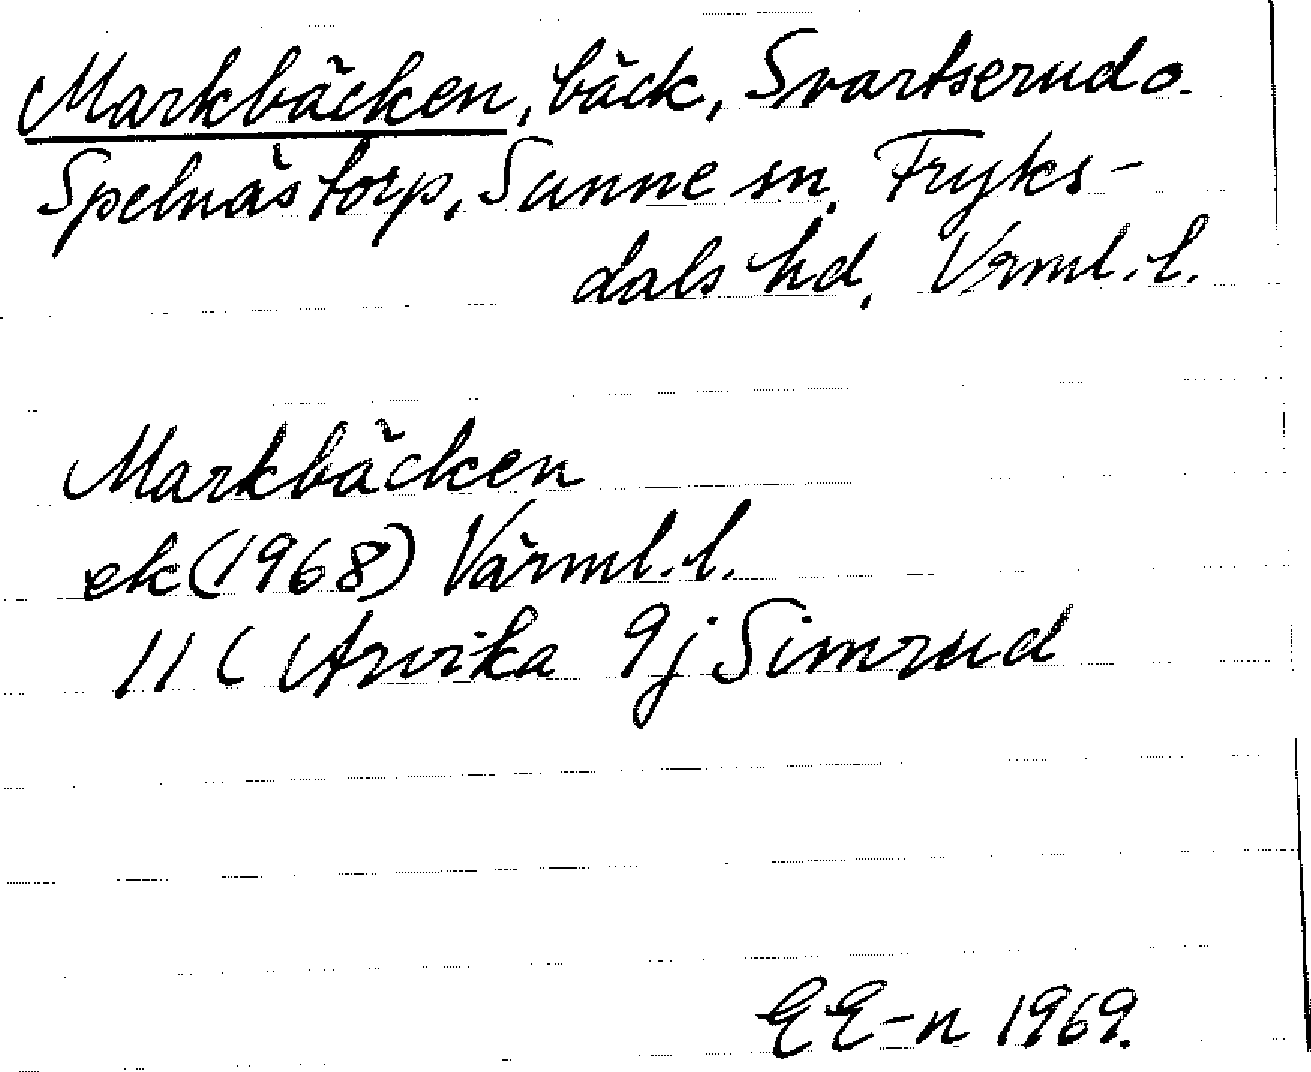 Markbäcken, bäck, Svartserud o.
Spelnästorp, Sunne sn, Fryks-
dals hd, Vrml. l.
Markbäcken
ek (1968) Värml. l.
11C Arvika 9j Simrud
E E-n 1969.